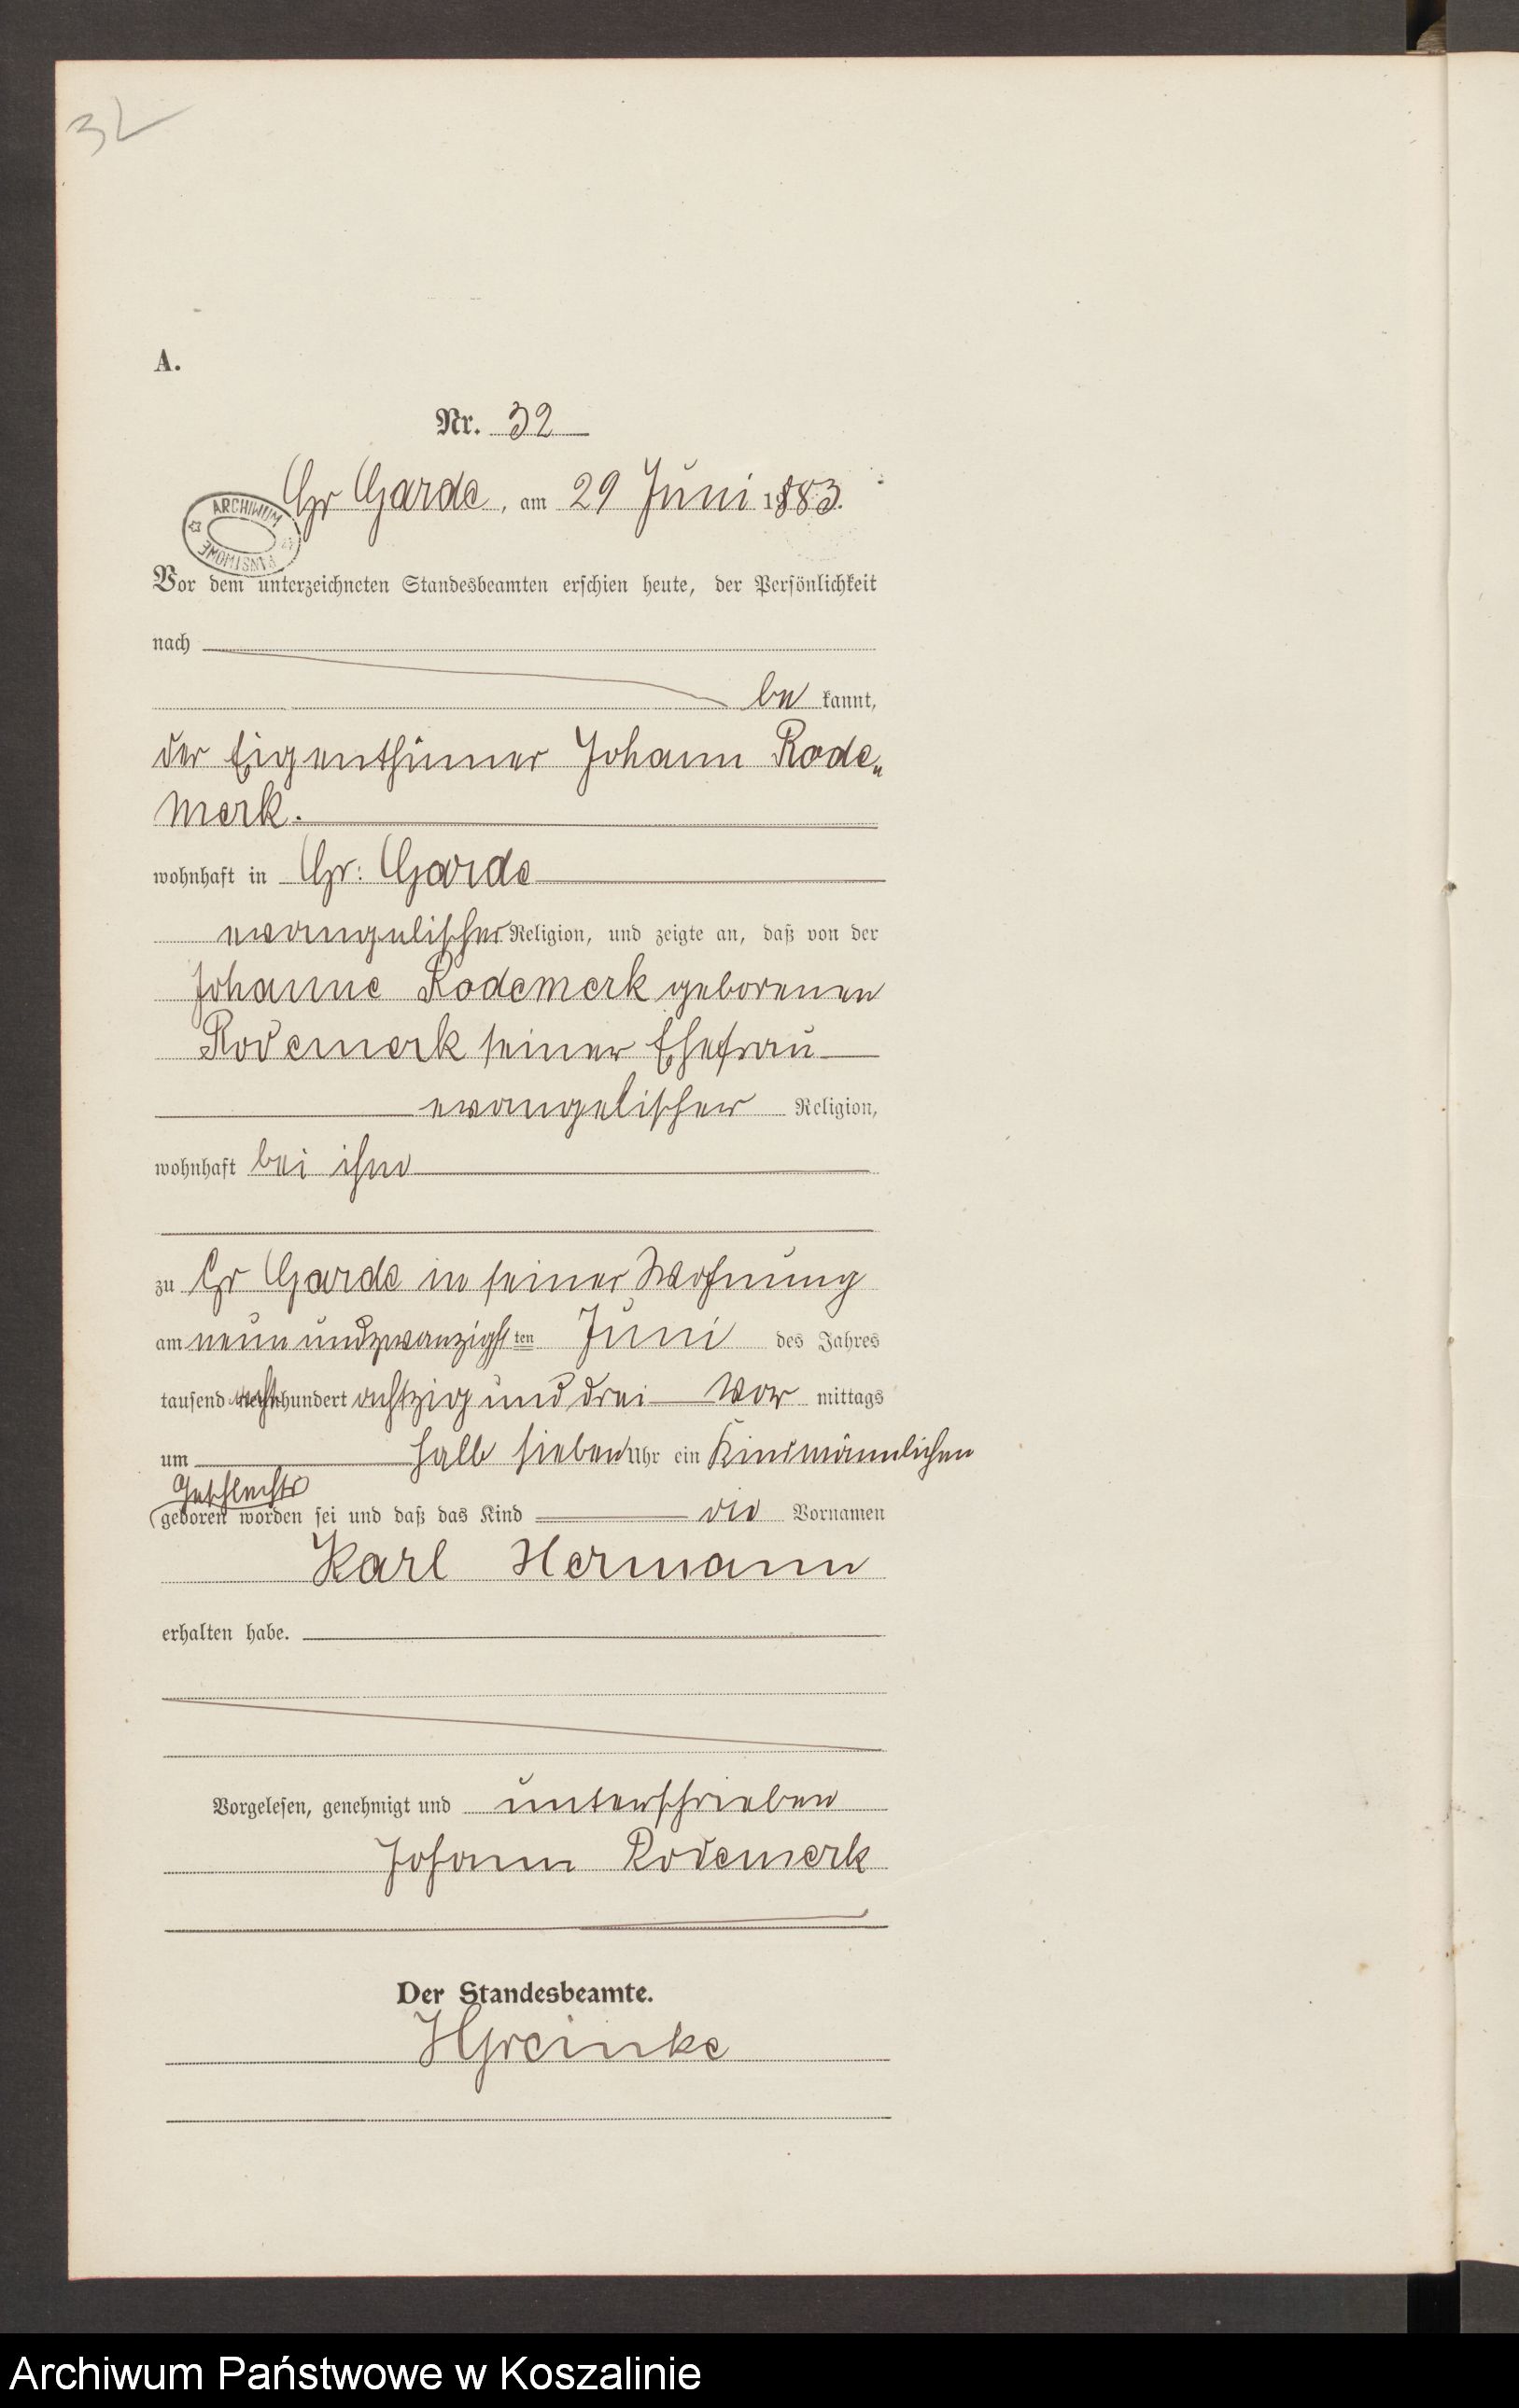 32
A.
Nr. 32
Gr Garde, am 29 Juni 1883.
ARCHIWUM
Vor dem unterzeichneten Standesbeamten erschien heute, der Persönlichkeit
nach
be kannt,
der Eigenthümer Johann Rode„
merk.
wohnhaft in Gr: Garde
evangelischer Religion, und zeigte an, daß von der
Johanne Rodemerk geborenen
Rodemerk seiner Ehefrau
evangelischer Religion,
wohnhaft bei ihm
zu Gr Garde in seiner Wohnung
am neun und zwanzigsten Juni des Jahres
tausend achthundert achtzig und drei Vor mittags
um halb sieben Uhr ein Kind männlichen
Geschlechts
geboren worden sei und daß das Kind die Vornamen
Karl Hermann
erhalten habe.
Vorgelesen, genehmigt und unterschrieben
Johann Rodemerk
Der Standesbeamte.
HGreinke
Archiwum Państwowe w Koszalinie